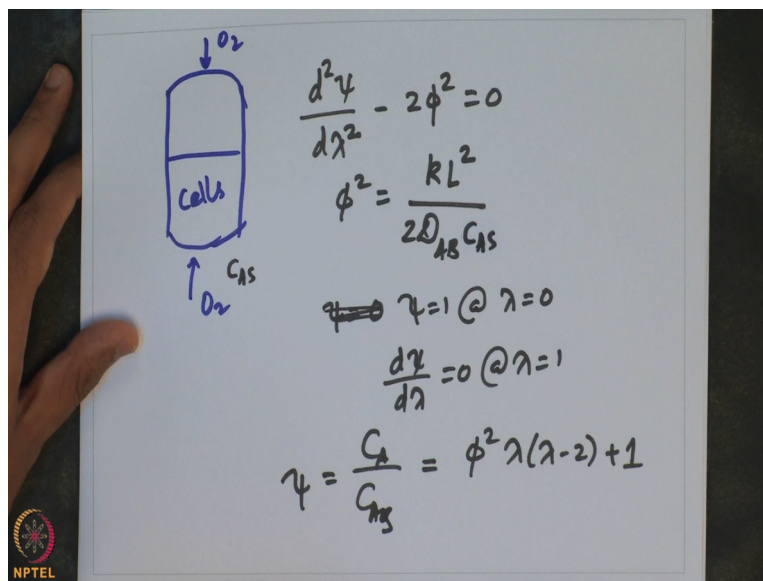 O₂
cells
C_AS
O₂
d²ψ/dλ² - 2ϕ² = 0
ϕ² = kL²/2D_AB C_AS
ψ=1 @ λ=0
dψ/dλ = 0 @ λ=1
ψ = C_A/C_AS = ϕ² λ(λ-2)+1
NPTEL